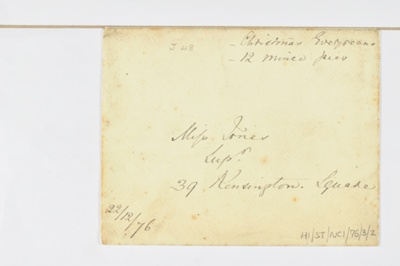 J 48
- Christmas Evergreens
- 12 mince pies
Miss Jones
Supt.
39 Kensington Square
22/12/76
H1/ST/NC1/76/3/2